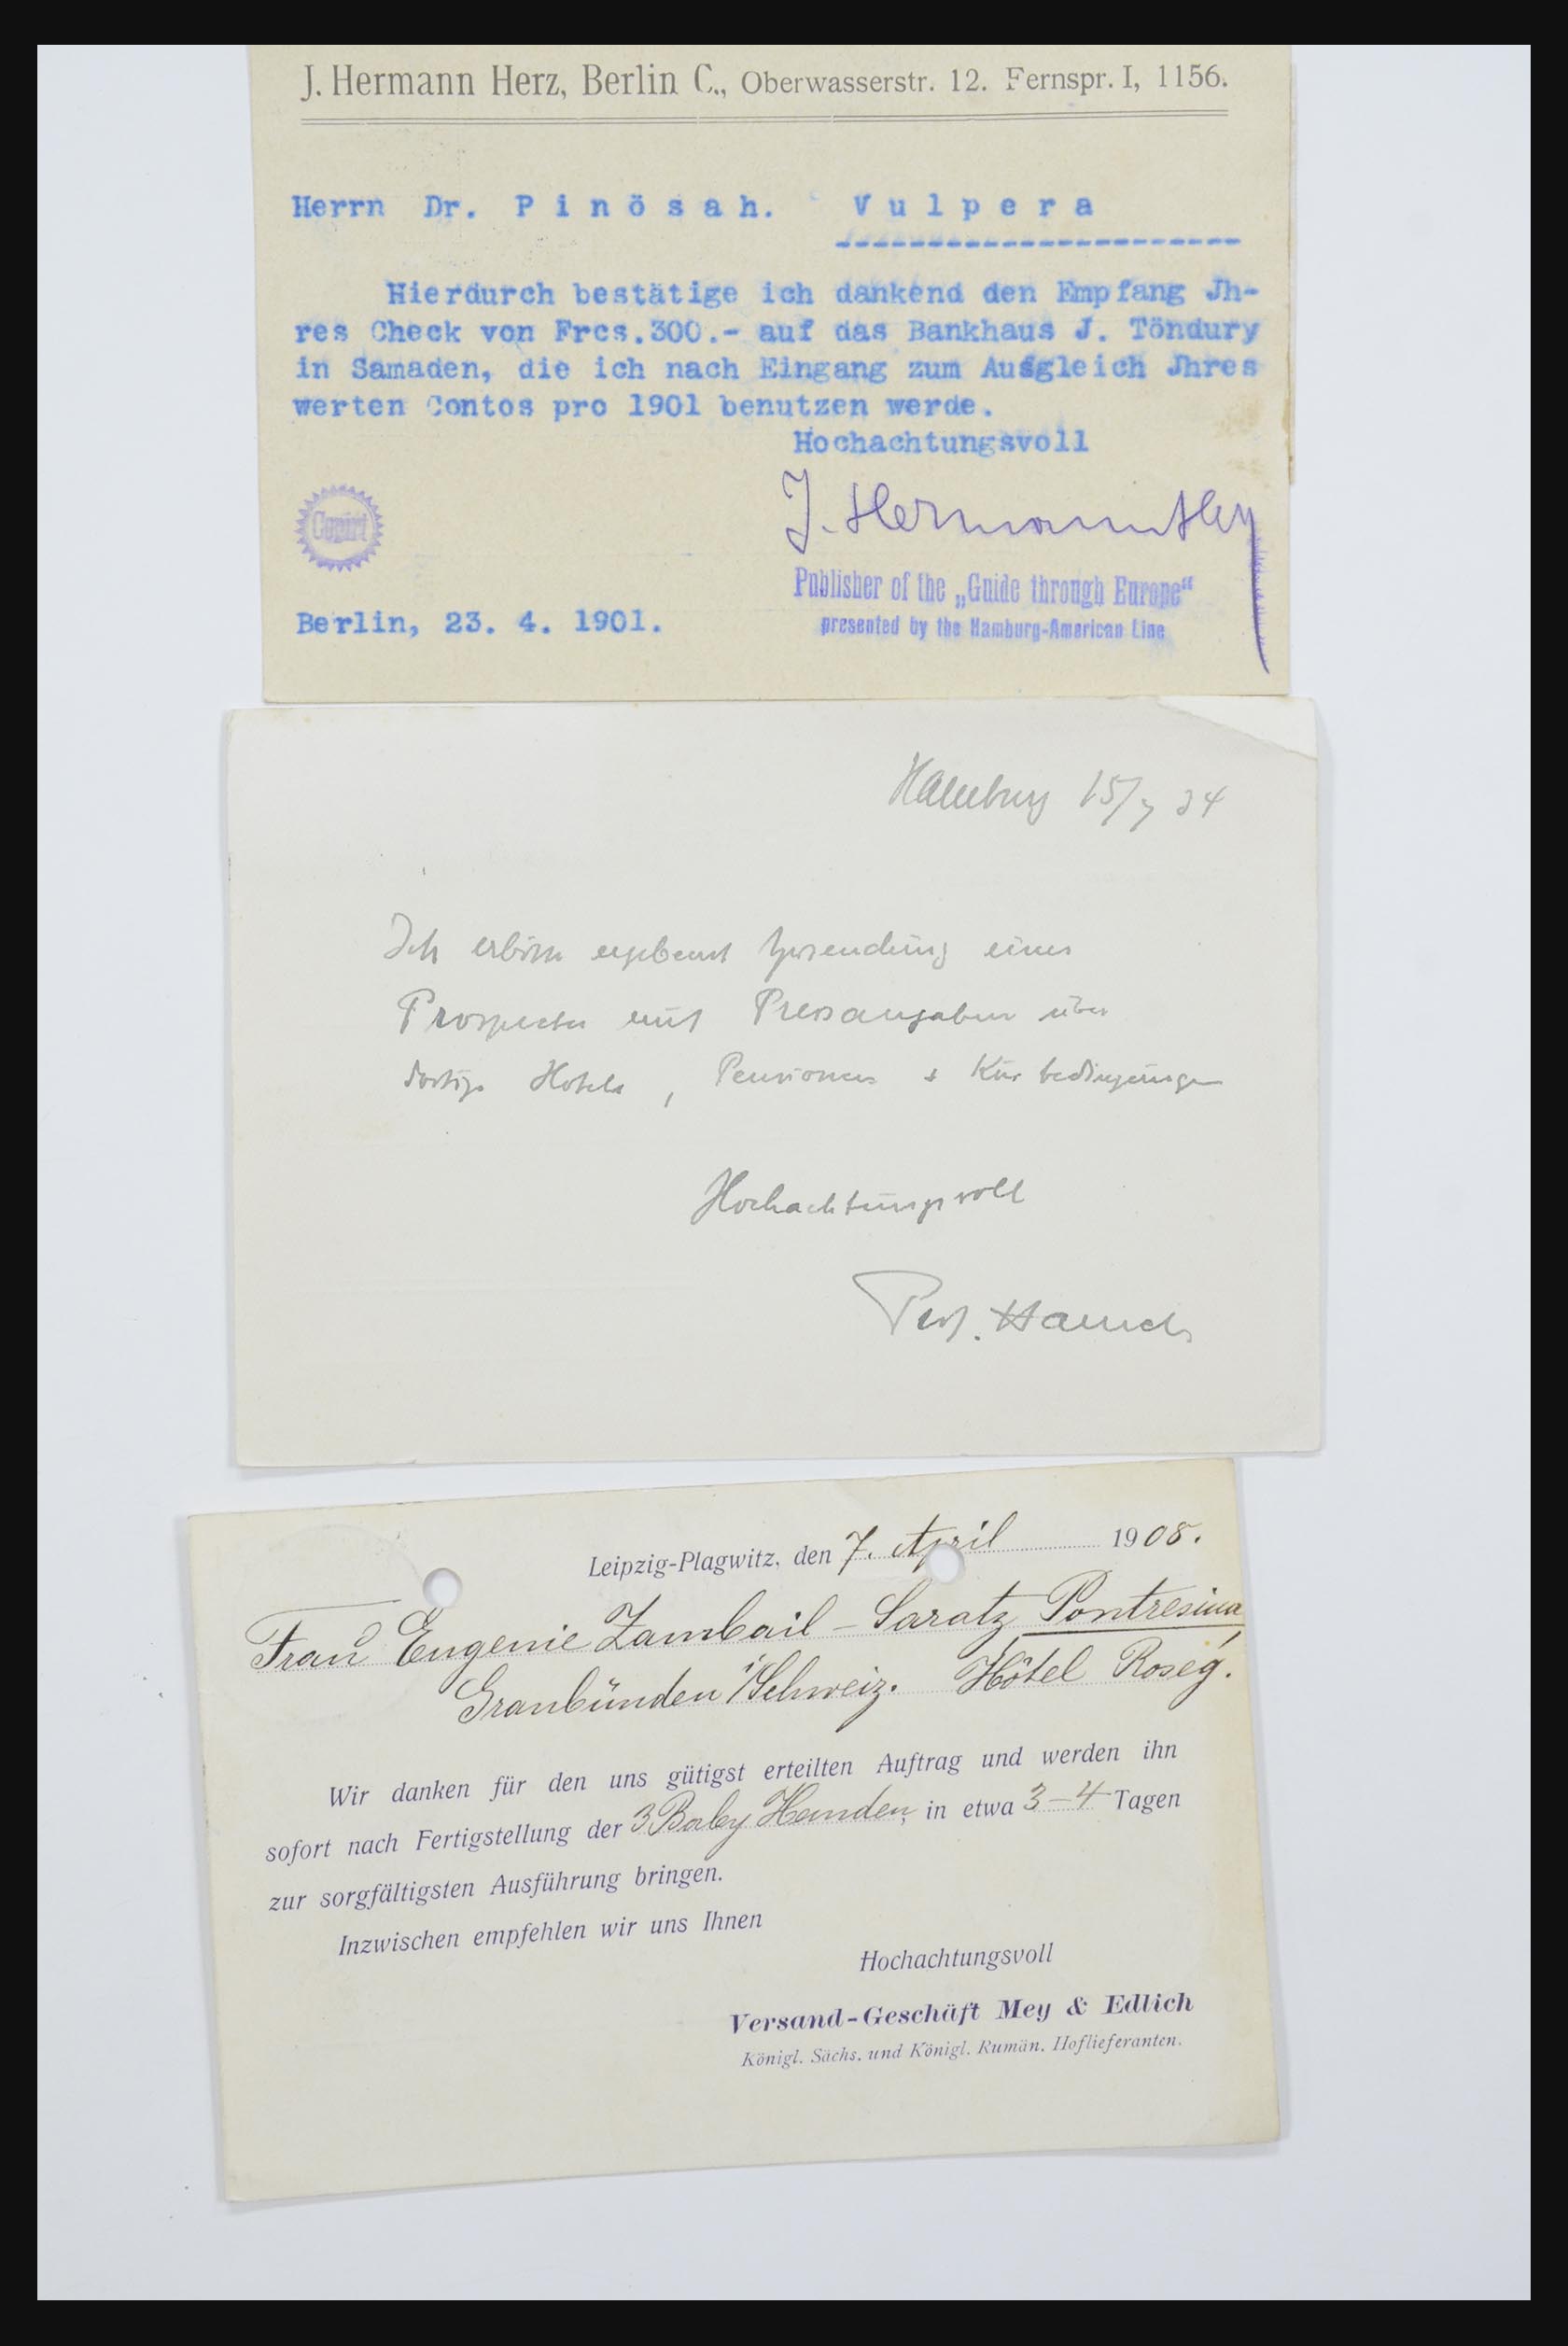 J. Hermann Herz, Berlin C., Oberwasserstr. 12. Fernspr. I, 1156.
Herrn Dr. Pinösah. Vulpera
Hierdurch bestätige ich dankend den Empfang Jh-
res Check von Frcs.300.- auf das Bankhaus J. Töndury
in Samaden, die ich nach Eingang zum Ausgleich Jhres
werten Contos pro 1901 benutzen werde.
Hochachtungsvoll
J. Hermann Herz
Copirt
Publisher of the „Guide through Europe“
presented by the Hamburg-American Line
Berlin, 23. 4. 1901.
Hamburg 15/7 24
Ich erbitte ergebenst Zusendung eines
Prospectes mit Preisangaben über
dortige Hotels, Pensionen + Kurbedingungen
Hochachtungsvoll
Prof.
Leipzig-Plagwitz, den 7. April 1908.
Frau Eugenie Zambail - Saratz Pontresina
Graubünden i/Schweiz. Hôtel Roseg.
Wir danken für den uns gütigst erteilten Auftrag und werden ihn
sofort nach Fertigstellung der 3 Baby Hemden, in etwa 3-4 Tagen
zur sorgfältigsten Ausführung bringen.
Inzwischen empfehlen wir uns Ihnen
Hochachtungsvoll
Versand-Geschäft Mey & Edlich
Königl. Sächs. und Königl. Rumän. Hoflieferanten.